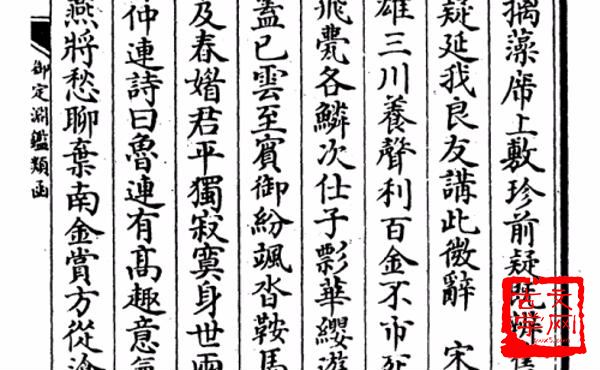 摛藻席上敷珍前疑既辨舊
疑延我良友講此微辭 宋
雄三川養聲利百金不市死
飛甍各鱗次仕子彯華纓遊
蓋已雲至賓御紛颯沓鞍馬
及春媚君平獨寂寞身世兩
仲連詩曰魯連有髙趣意氣
燕將愁聊棄南金賞方從滄
御定淵鑑類函